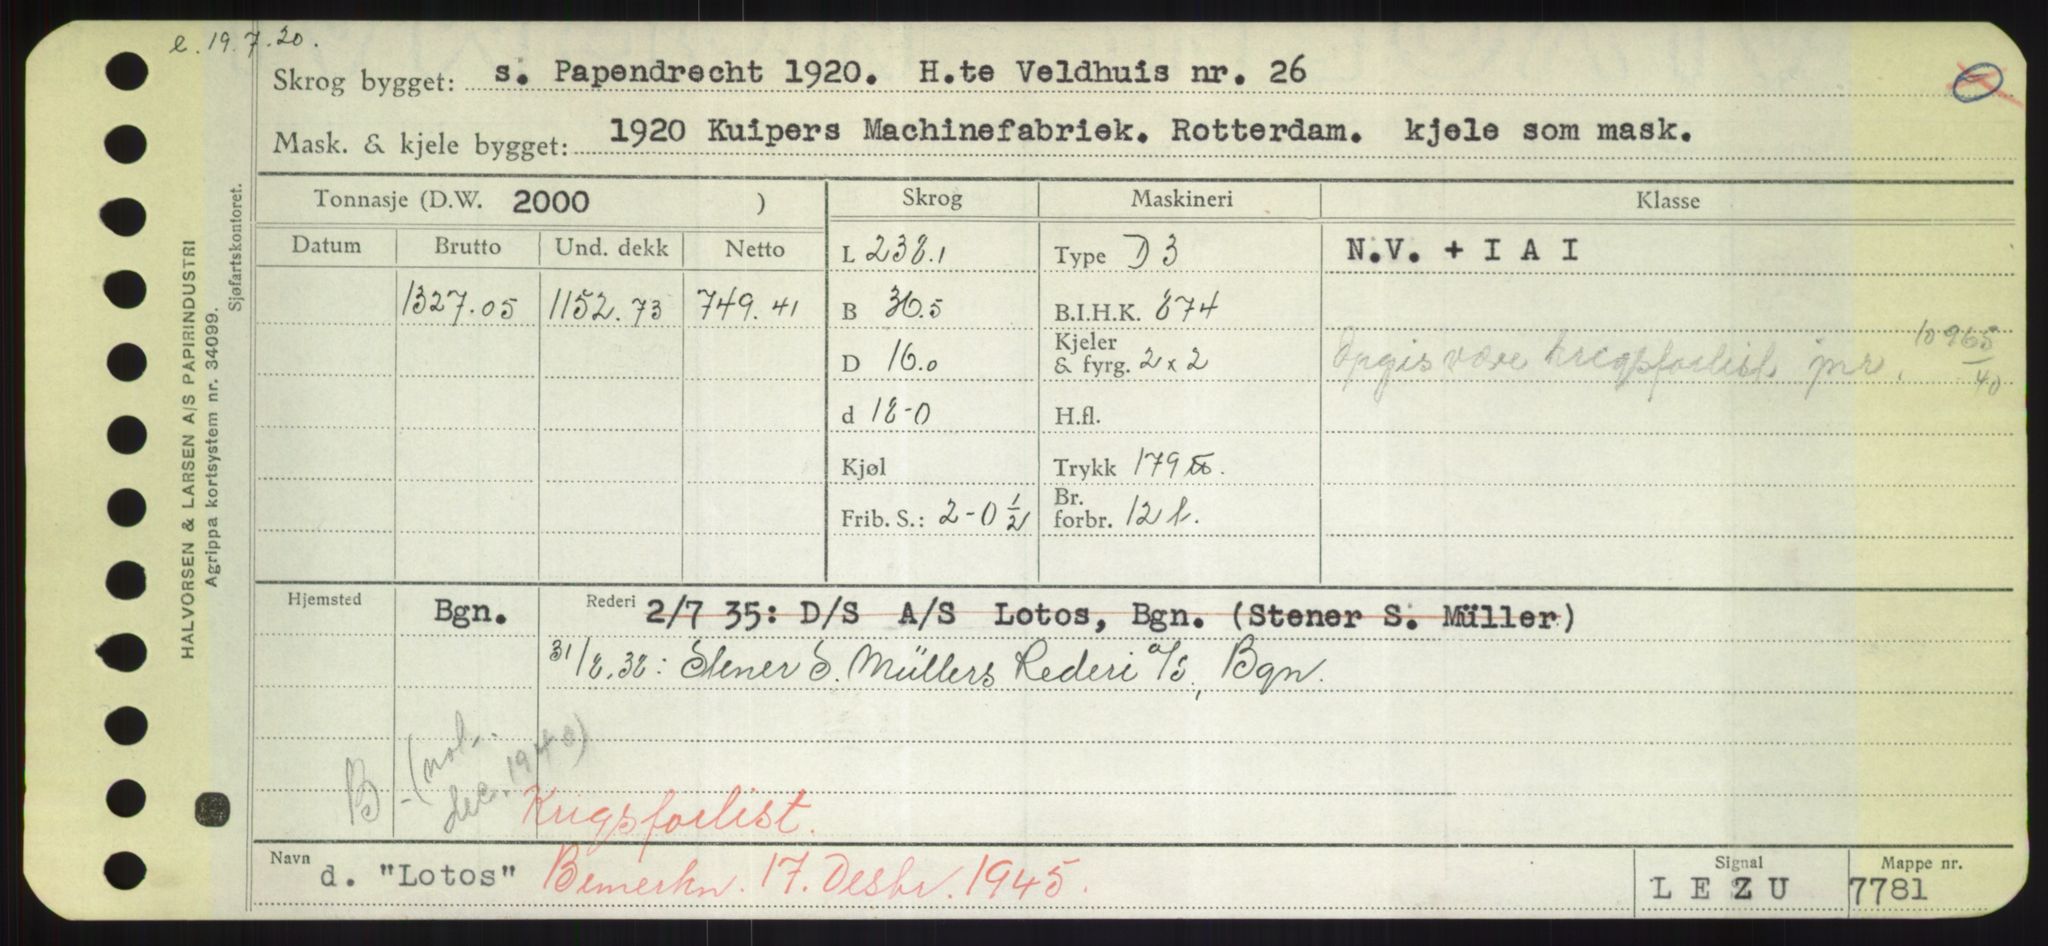 e. 19.7.20.
Skrog bygget: s. Papendrecht 1920. H.te Veldhuis nr. 26
Mask. & kjele bygget: 1920 Kuipers Machinefabriek. Rotterdam. kjele som mask.
HALVORSEN & LARSEN A/S PAPIRINDUSTRI
Agrippa kortsystem nr. 34099.
Sjøfartskontoret.
Tonnasje (D.W. 2000 ) Skrog Maskineri Klasse
Datum Brutto Und. dekk Netto L 238.1 Type D3 N.V. + I A I
1327.05 1152.73 749.41 B 36.5 B.I.H.K. 874
D 16.0 Kjeler & fyrg. 2x2 Opgis være krigsforlist jnr. 10965/40
d 18-0 H.fl.
Kjøl Trykk 179 lb.
Frib. S.: 2-0 1/2 Br. forbr. 12 t.
Hjemsted Bgn. Rederi 2/7 35: D/S A/S Lotos, Bgn. (Stener S. Müller)
31/8.38: Stener S. Müllers Rederi A/S, Bgn.
B - (not. dec. 1940)
Krigsforlist.
Navn d. "Lotos" Bemerkn. 17. Desbr. 1945. Signal LEZU Mappe nr. 7781